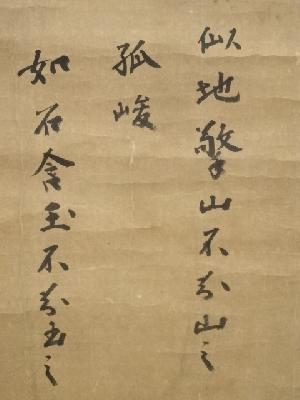 似地擎山不知山之
孤峻
如石含玉不知玉之